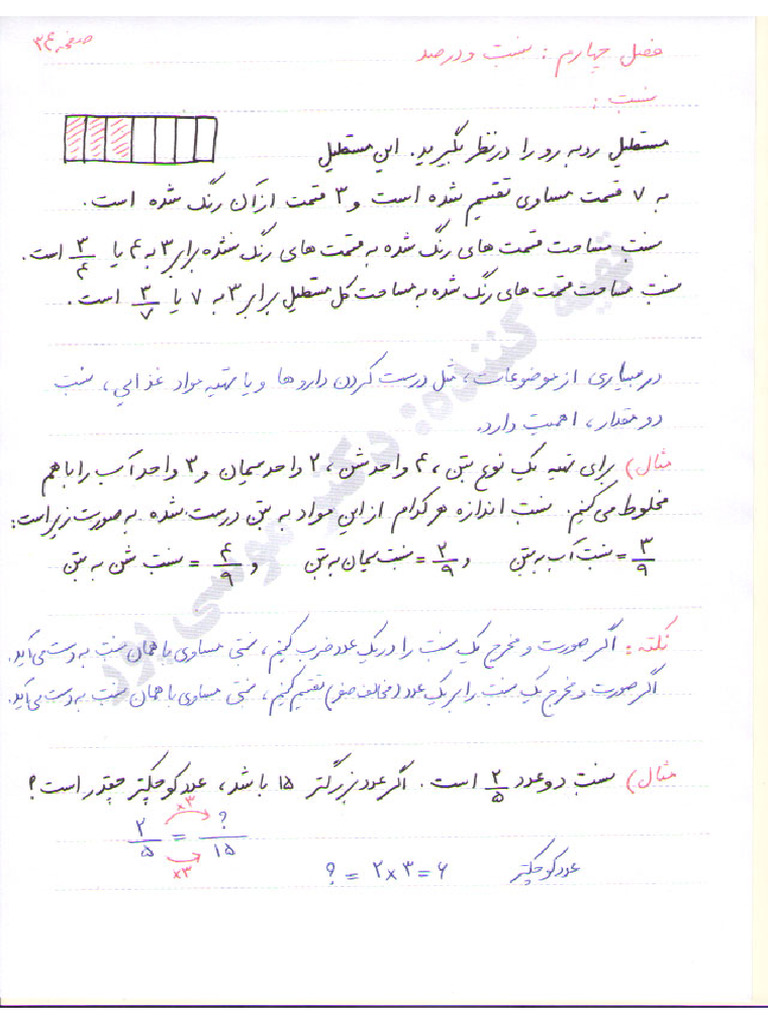 صفحه ۳۴
فصل چهارم : نسبت و درصد
نسبت :
مستطیل روبه رو را در نظر بگیرید. این مستطیل
به ۷ قسمت مساوی تقسیم شده است و ۳ قسمت از آن رنگ شده است.
نسبت مساحت قسمت های رنگ شده به قسمت های رنگ نشده برابر ۳ به ۴ یا ۳/۴ است.
نسبت مساحت قسمت های رنگ شده به مساحت کل مستطیل برابر ۳ به ۷ یا ۳/۷ است.
در بسیاری از موضوعات، مثل درست کردن داروها و یا تهیه مواد غذایی، نسبت
دو مقدار، اهمیت دارد.
مثال) برای تهیه یک نوع بتن، ۴ واحد شن، ۲ واحد سیمان و ۳ واحد آب را با هم
مخلوط می کنیم. نسبت اندازه هر کدام از این مواد به بتن درست شده به صورت زیر است:
۳/۹ = نسبت آب به بتن و ۲/۹ = نسبت سیمان به بتن و ۴/۹ = نسبت شن به بتن
نکته : اگر صورت و مخرج یک نسبت را در یک عدد ضرب کنیم، نسبتی مساوی با همان نسبت به دست می آید.
اگر صورت و مخرج یک نسبت را بر یک عدد (مخالف صفر) تقسیم کنیم، نسبتی مساوی با همان نسبت به دست می آید.
مثال) نسبت دو عدد ۲/۵ است. اگر عدد بزرگتر ۱۵ باشد، عدد کوچکتر چقدر است؟
×۳
۲/۵ = ؟/۱۵
×۳
عدد کوچکتر ؟ = ۲×۳=۶
تهیه کننده: دکتر موسی پرد